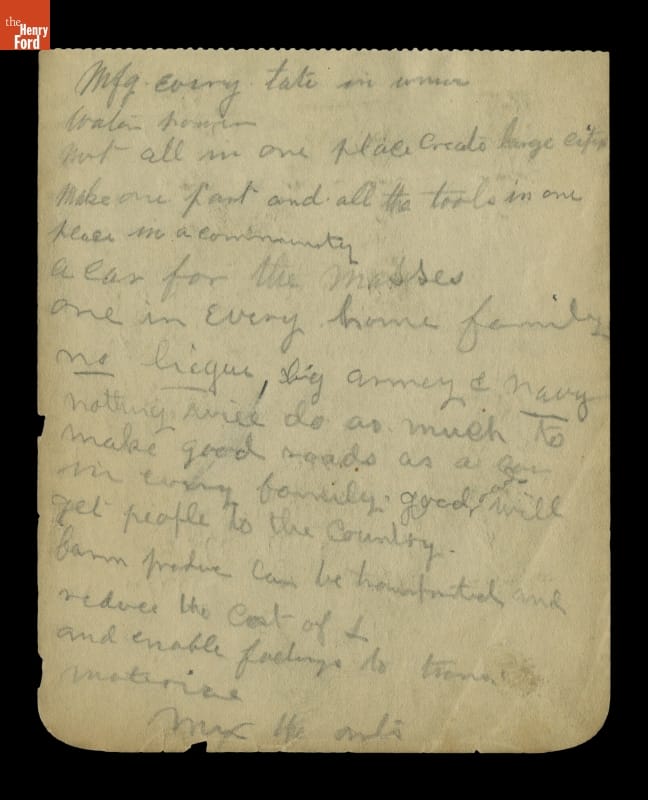 the
Henry
Ford
Mfg. every tate in
Water power
not all in one place Create large citys
Make one part and all the tools in one
place in a community
a car for the masses
one in every home family
no , big armey & Navy
nothing will do as much to
make good roads as a car
in every family. good roads will
get people to the Country.
farm produce can be and
reduce the cost of L
and enable to trans.
material
the